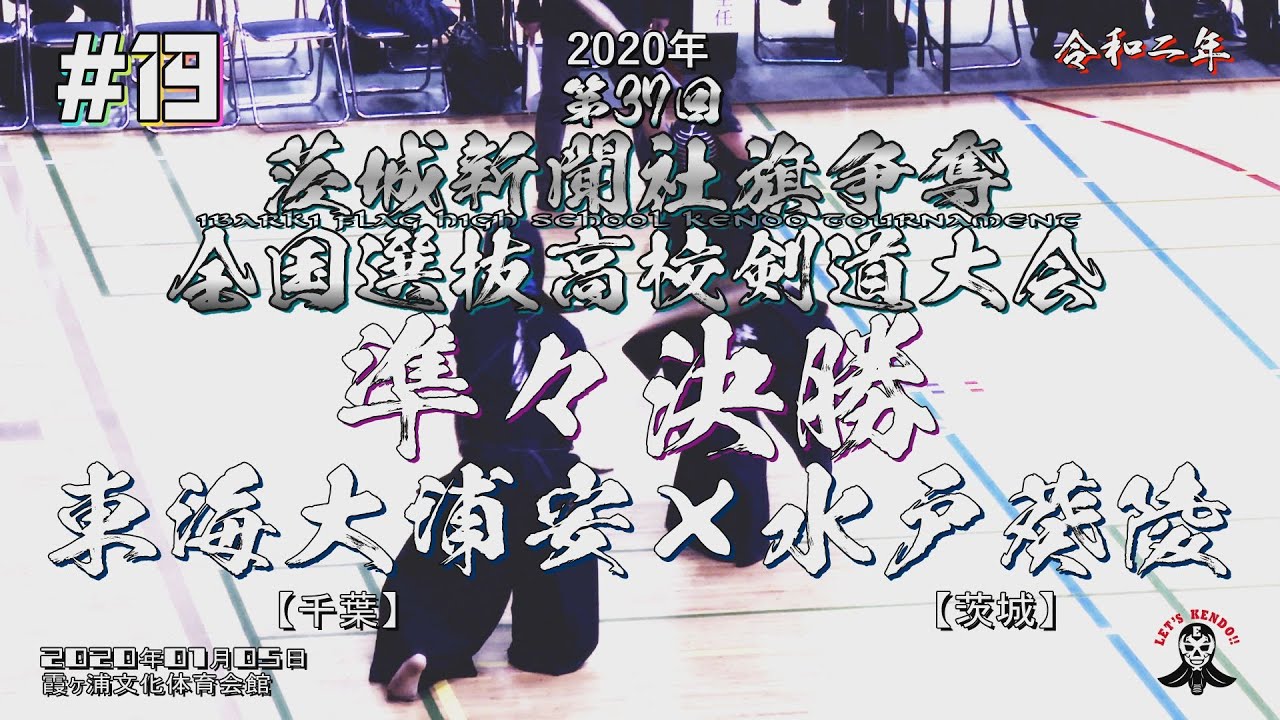 #19
2020年
令和二年
第37回
茨城新聞社旗争奪
IBARKI FLAG HIGH SCHOOL KENDO TOURNAMENT
全国選抜高校剣道大会
準々決勝
東海大浦安×水戸葵陵
【千葉】
【茨城】
2020年01月05日
霞ヶ浦文化体育会館
LET'S KENDO!!